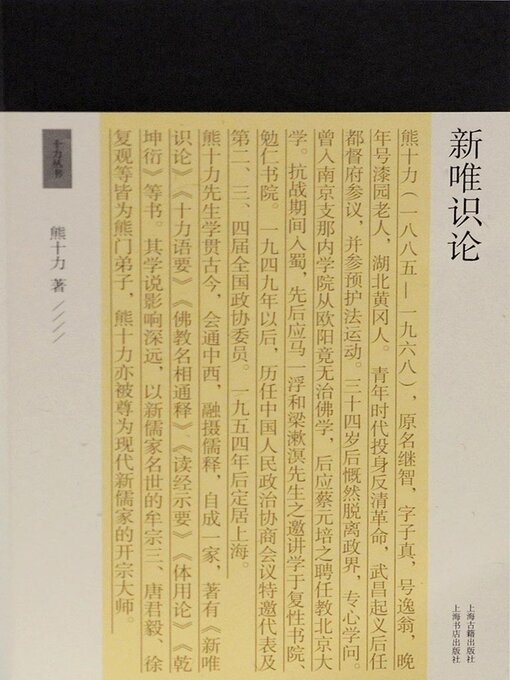 新唯识论
熊十力（一八八五—一九六八），原名继智，字子真，号逸翁，晚
年号漆园老人，湖北黄冈人。青年时代投身反清革命，武昌起义后任
都督府参议，并参预护法运动。三十四岁后慨然脱离政界，专心学问。
曾入南京支那内学院从欧阳竟无治佛学，后应蔡元培之聘任教北京大
学。抗战期间入蜀，先后应马一浮和梁漱溟先生之邀讲学于复性书院、
勉仁书院。一九四九年以后，历任中国人民政治协商会议特邀代表及
第二、三、四届全国政协委员。一九五四年后定居上海。
熊十力先生学贯古今，会通中西，融摄儒释，自成一家，著有《新唯
识论》《十力语要》《佛教名相通释》《读经示要》《体用论》《乾
坤衍》等书。其学说影响深远，以新儒家名世的牟宗三、唐君毅、徐
复观等皆为熊门弟子，熊十力亦被尊为现代新儒家的开宗大师。
十力丛书
熊十力 著
上海古籍出版社
上海书店出版社